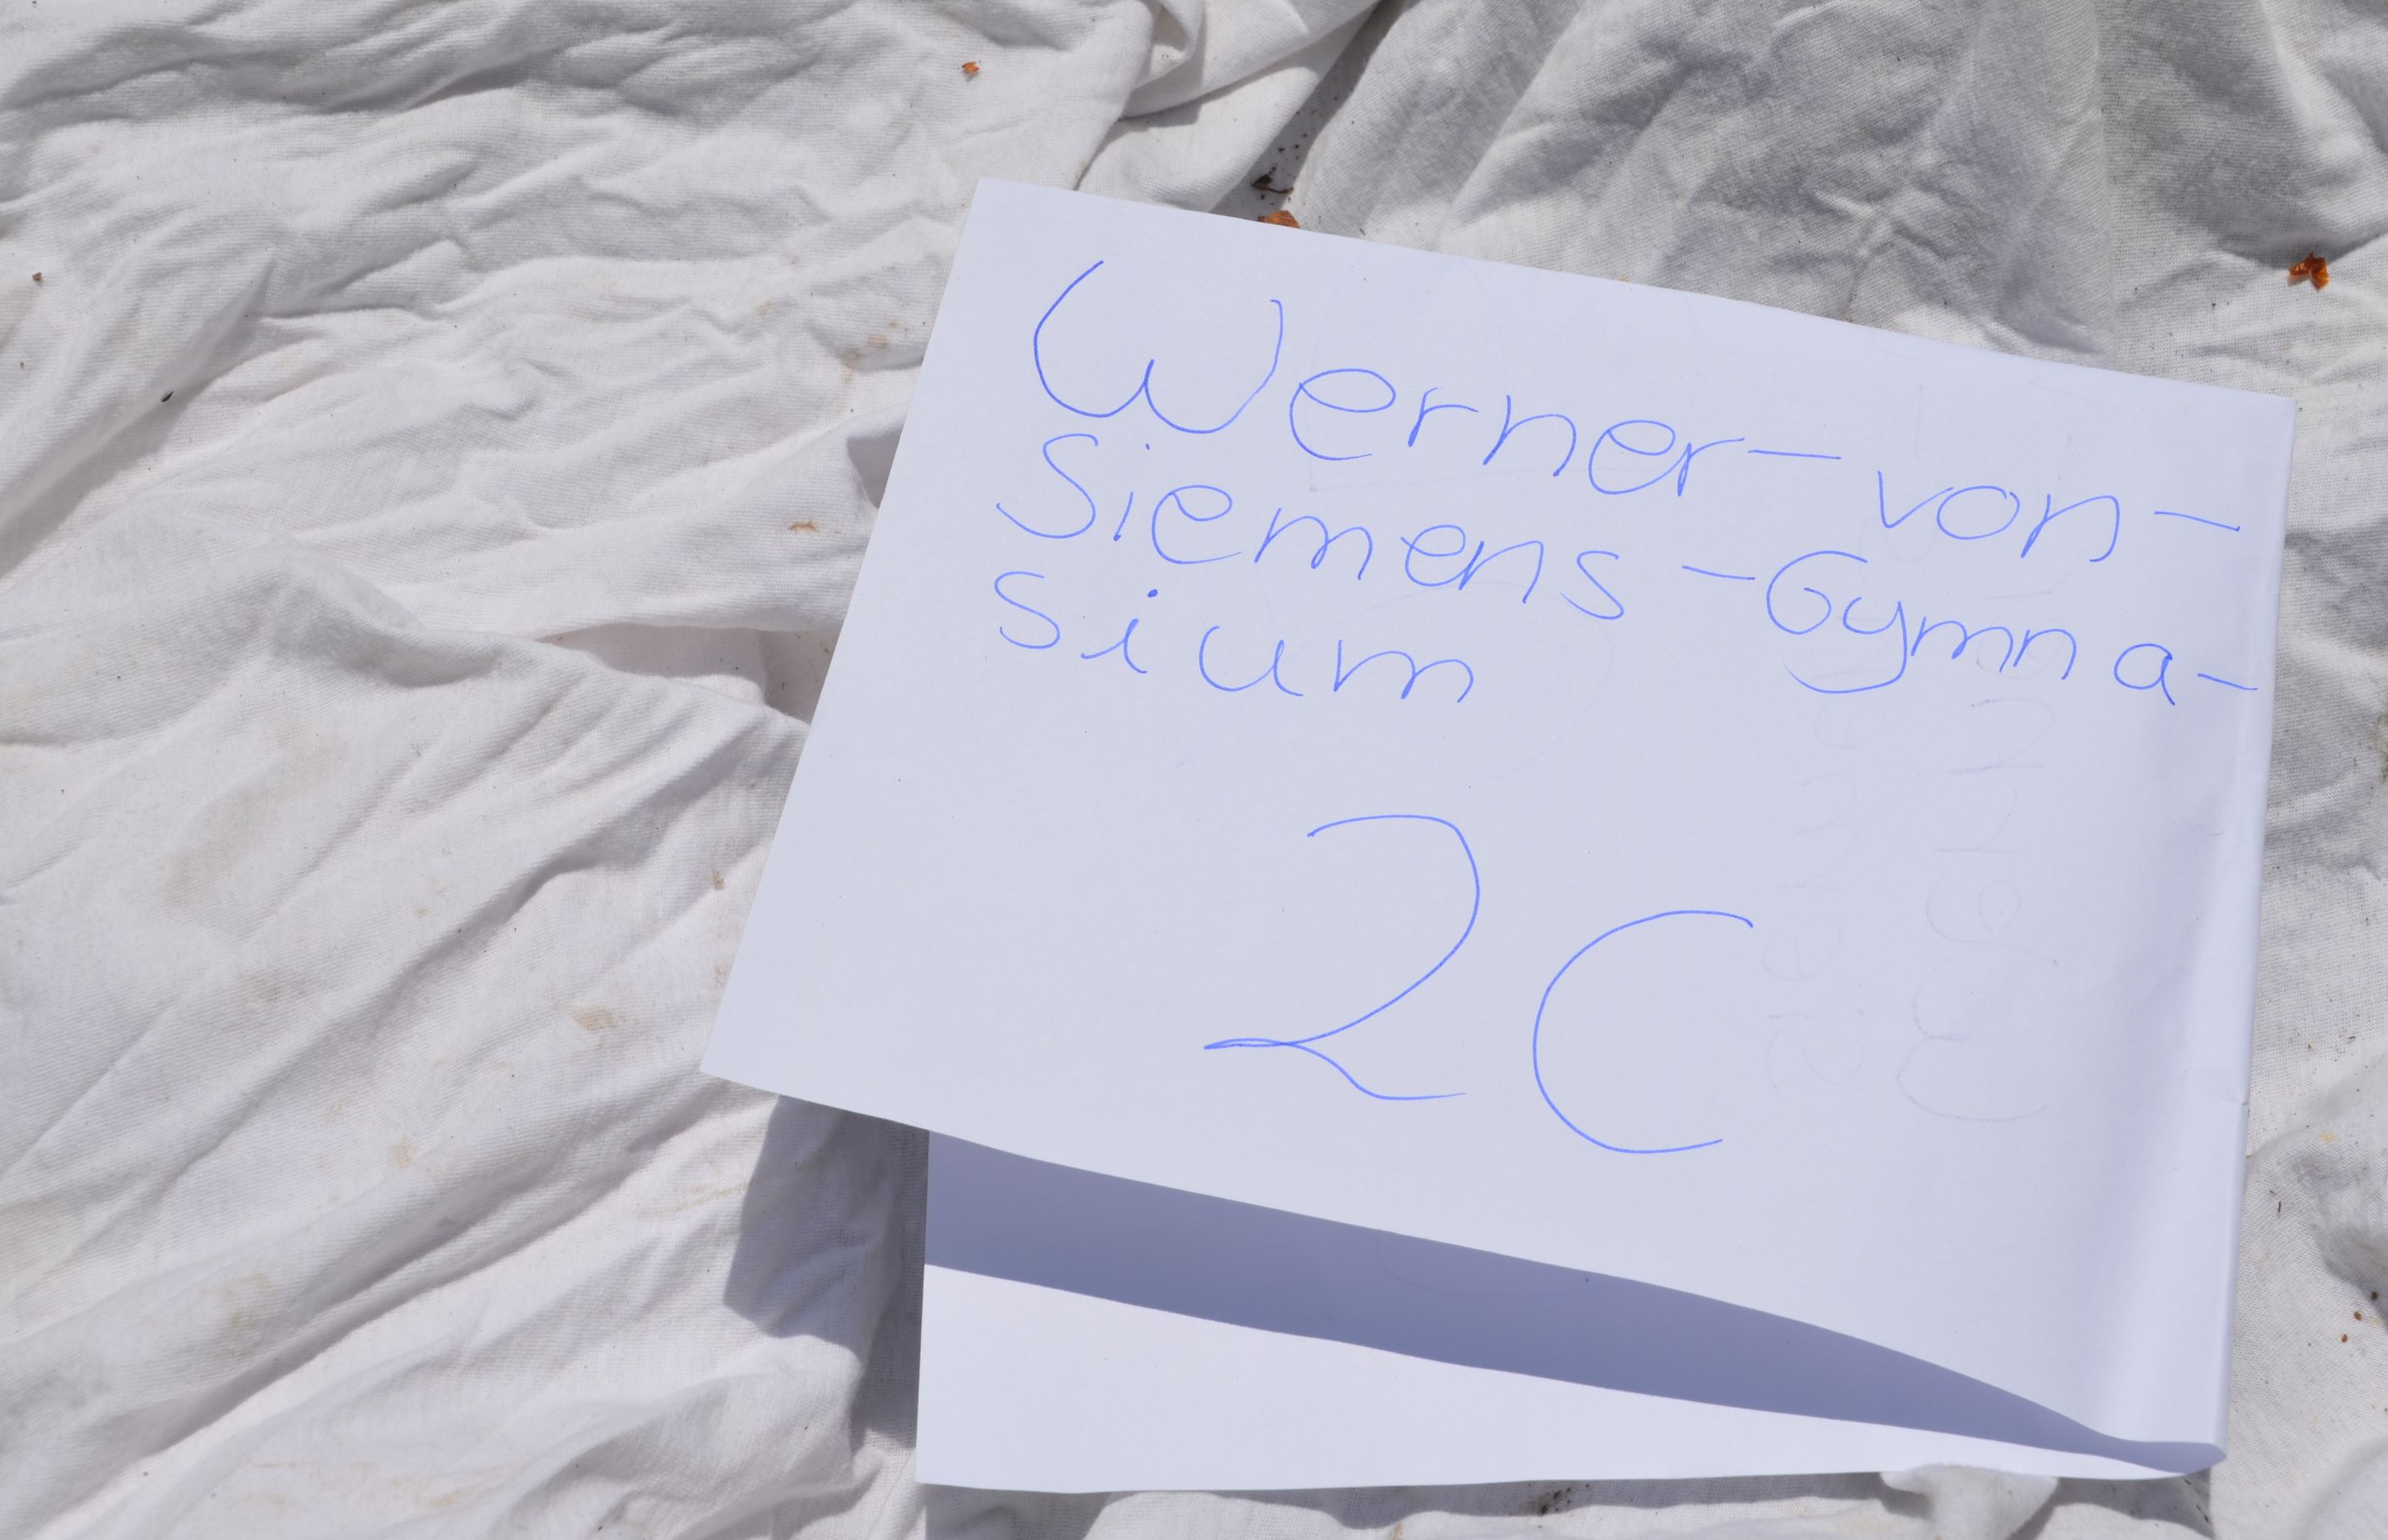 Werner-von-
Siemens-Gymna-
sium
2C